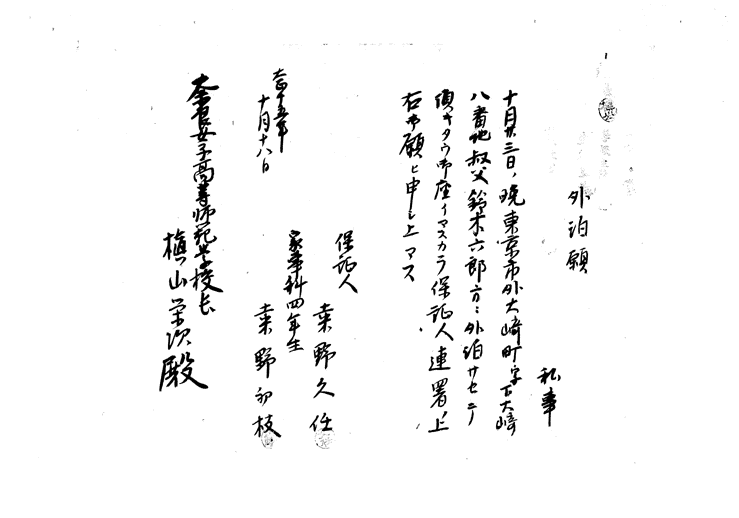 外泊願
私事
十月廿三日ノ晩東京市外大崎町字下大崎
八番地叔父鈴木六郎方ニ外泊サセテ
頂キタウ御座イマスカラ保証人連署ノ上
右御願ヒ申シ上マス
保証人
桒野久任
家事科四年生
桒野初枝
大正十五年
十月十八日
奈良女子高等師範学校長
槇山栄次殿